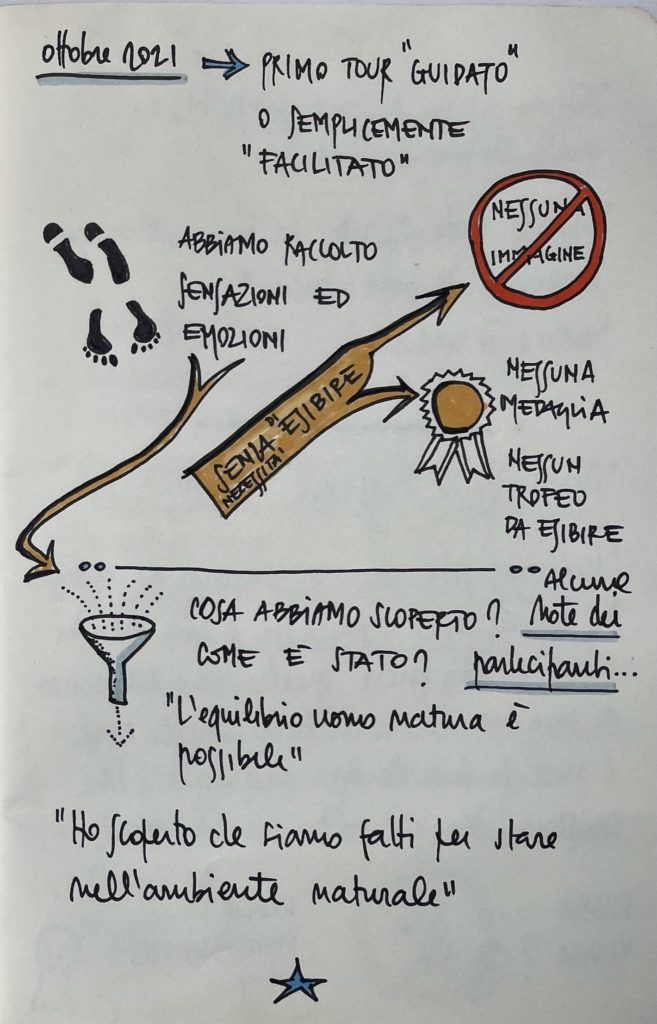 ottobre 2021 → PRIMO TOUR "GUIDATO"
O SEMPLICEMENTE
"FACILITATO"
NESSUNA
IMMAGINE
ABBIAMO RACCOLTO
SENSAZIONI ED
EMOZIONI
SENZA DI ESIBIRE
NECESSITA'
NESSUNA
MEDAGLIA
NESSUN
TROFEO
DA ESIBIRE
COSA ABBIAMO SCOPERTO?
COME È STATO?
Alcune
note dei
partecipanti...
"L'equilibrio uomo natura è
possibile"
"Ho scoperto che siamo fatti per stare
nell'ambiente naturale"